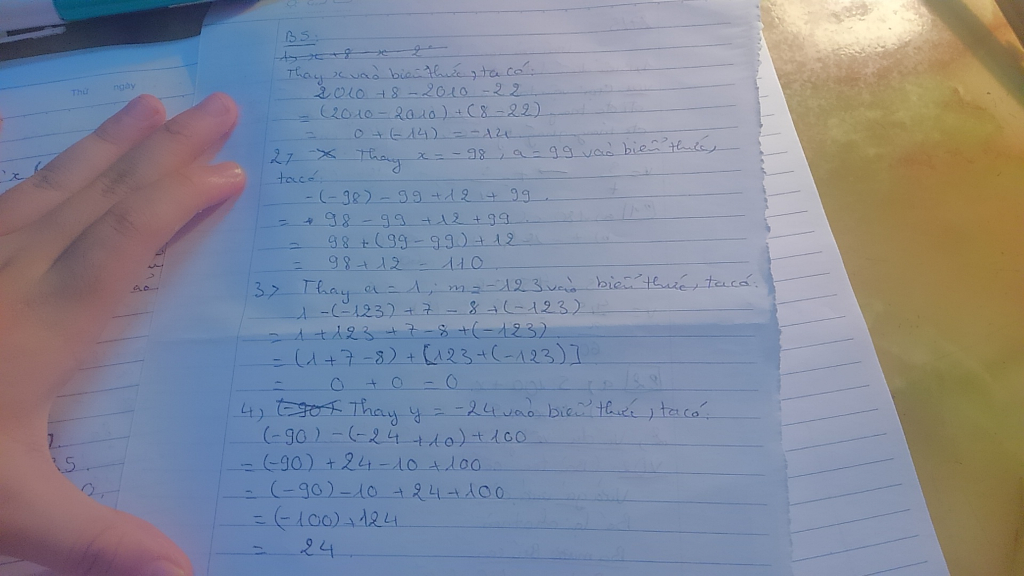 THỨ NGÀY
B5:
Thay x vào biểu thức, ta có:
2010 + 8 - 2010 - 22
= (2010 - 2010) + (8 - 22)
= 0 + (-14) = -14
2, Thay x = -98, a = 99 vào biểu thức,
ta có
-(-98) - 99 + 12 + 99.
= 98 - 99 + 12 + 99
= 98 + (99 - 99) + 12
= 98 + 12 = 110
3, Thay a = 1, m = -123 vào biểu thức, ta có:
1 - (-123) + 7 - 8 + (-123)
= 1 + 123 + 7 - 8 + (-123)
= (1 + 7 - 8) + [123 + (-123)]
= 0 + 0 = 0
4, (-90) Thay y = -24 vào biểu thức, ta có:
(-90) - (-24 + 10) + 100
= (-90) + 24 - 10 + 100
= (-90) - 10 + 24 + 100
= (-100) + 124
= 24.